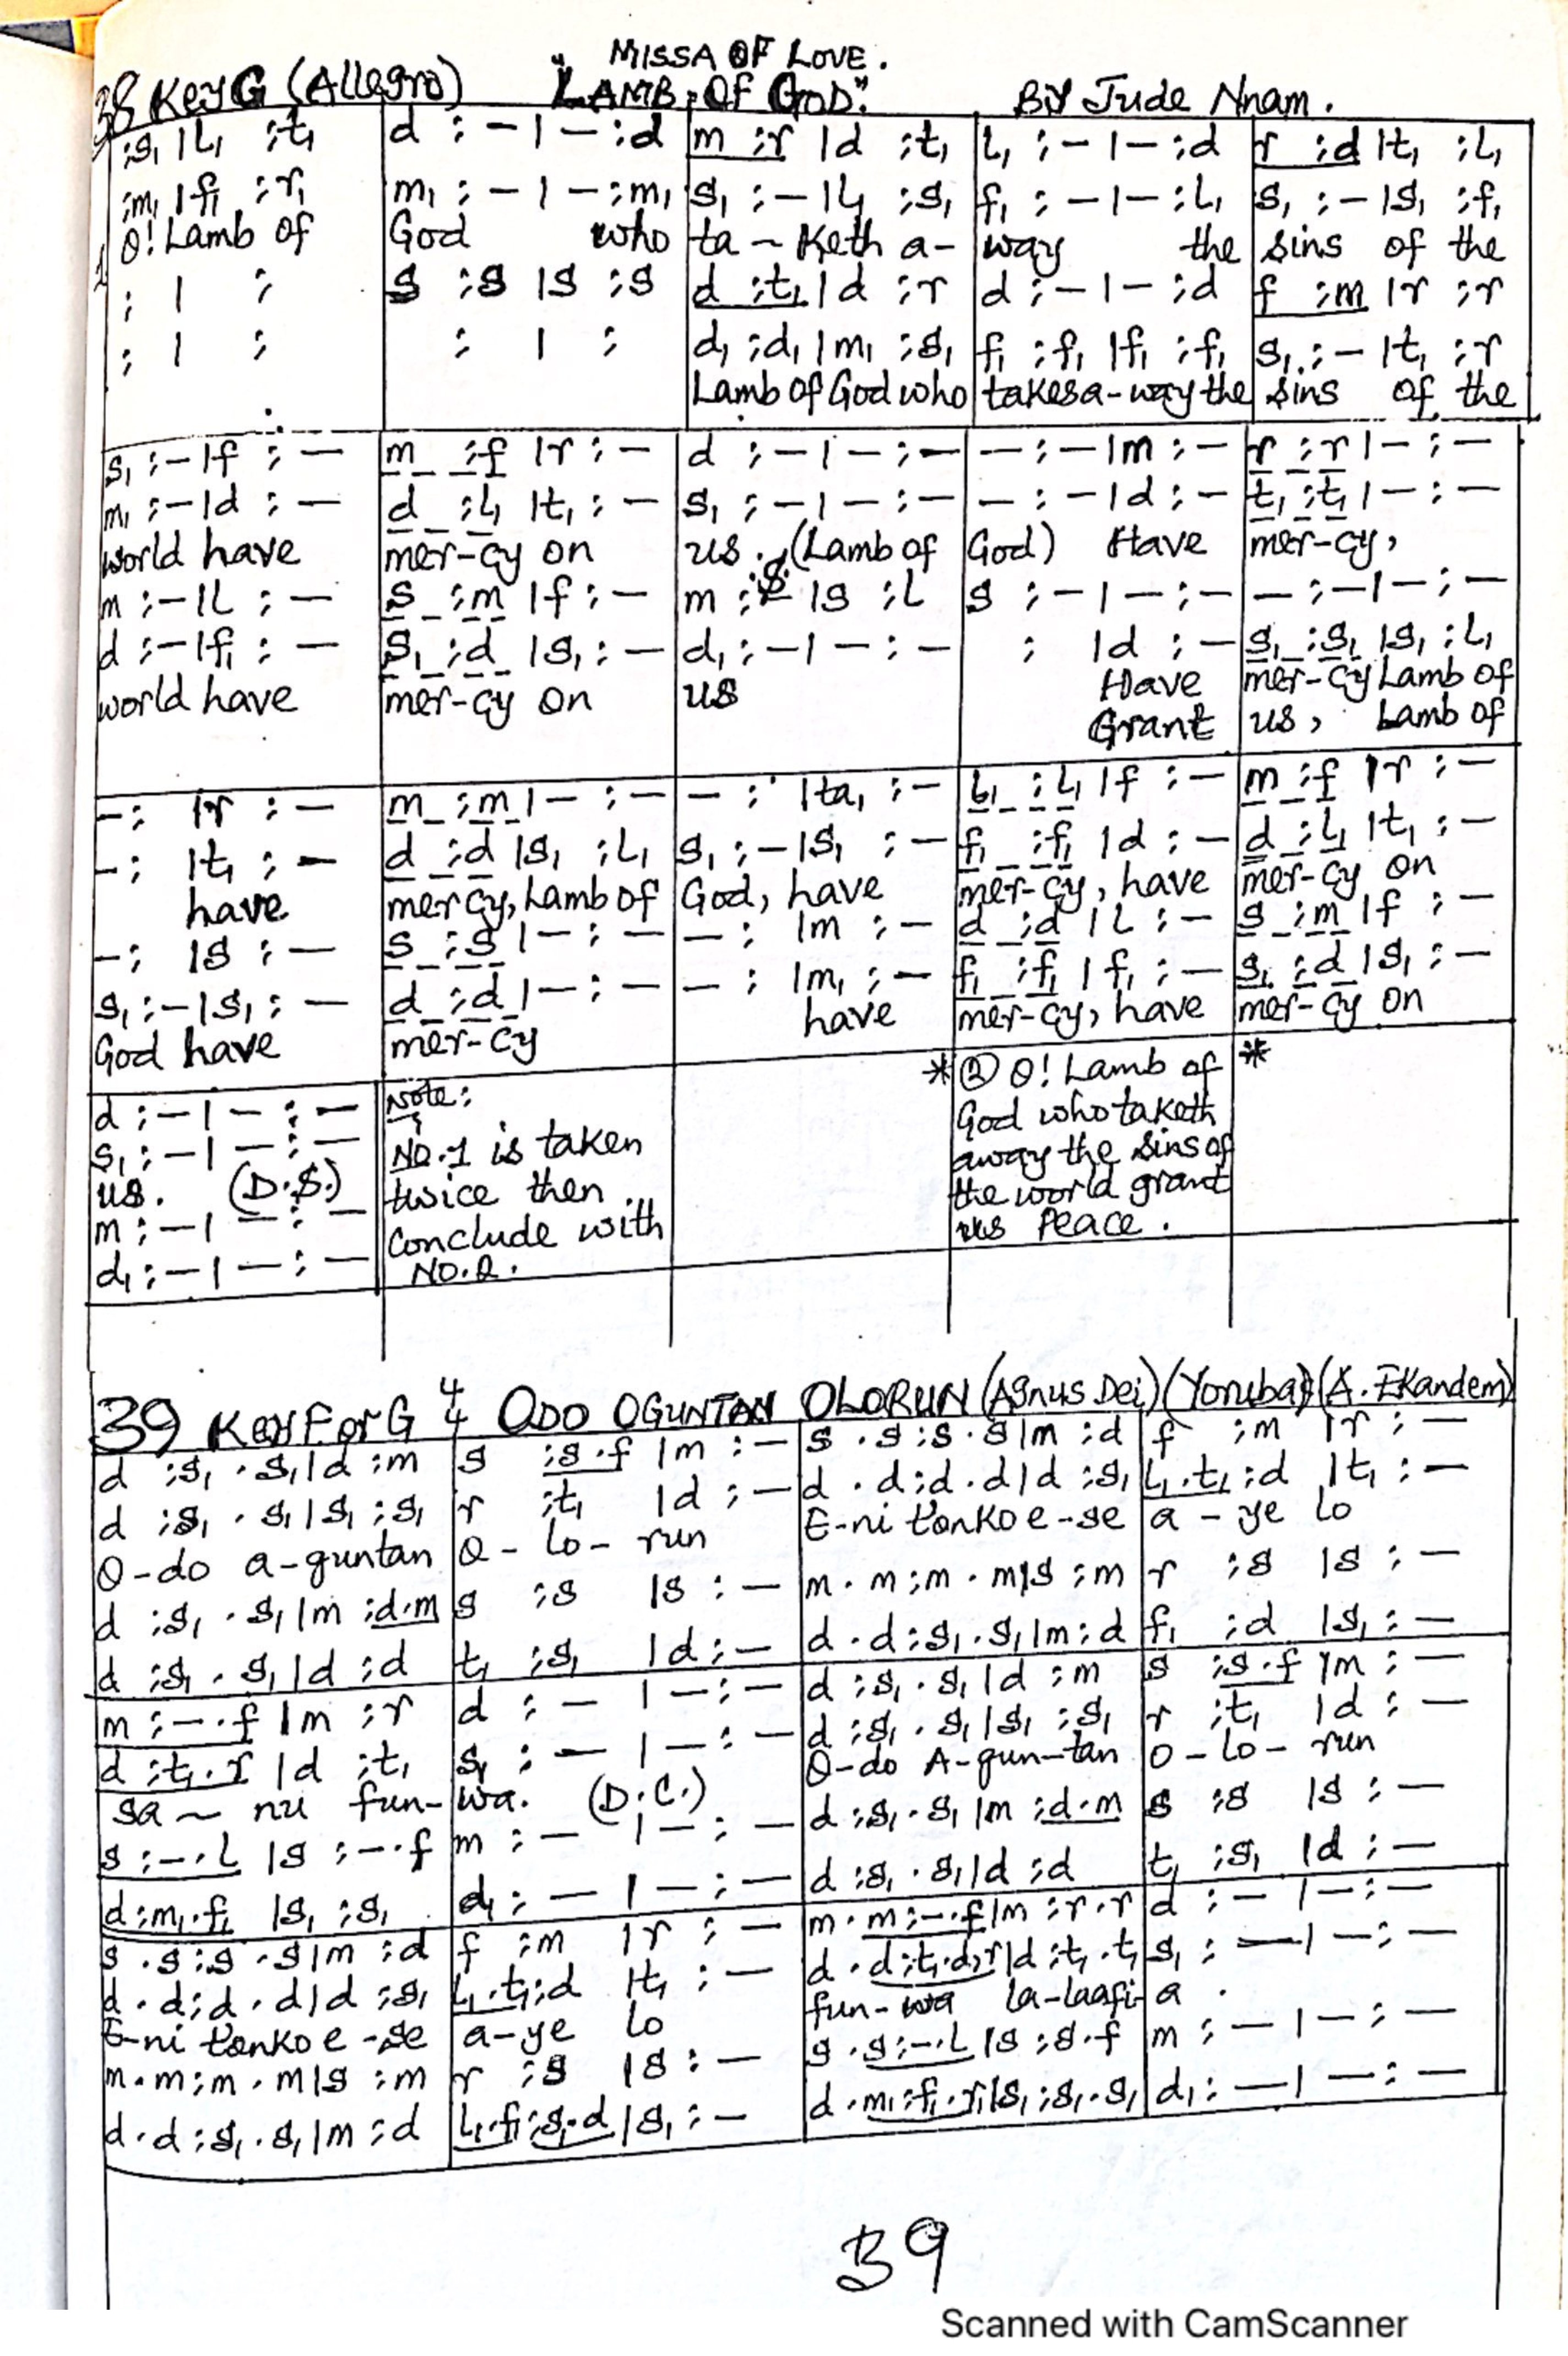 MISSA OF LOVE.
38 Key G (Allegro) "LAMB OF GOD" By Jude Nnam.
:s₁ |l₁ :t₁ | d :- |- :d | m :r |d :t₁ | l₁ :- |- :d | r :d |t₁ :l₁
:m₁ |f₁ :r₁ | m₁ :- |- :m₁ | s₁ :- |l₁ :s₁ | f₁ :- |- :l₁ | s₁ :- |s₁ :f₁
O! Lamb of God who ta-Keth a-way the sins of the
1 : | : | s :s |s :s | d :t₁ |d :r | d :- |- :d | f :m |r :r
: | : | : | : | d₁ :d₁ |m₁ :s₁ | f₁ :f₁ |f₁ :f₁ | s₁ :- |t₁ :r
Lamb of God who takes a-way the sins of the
s₁ :- |f :- | m :f |r :- | d :- |- :- | - :- |m :- | r :r |- :-
m₁ :- |d :- | d :l₁ |t₁ :- | s₁ :- |- :- | - :- |d :- | t₁ :t₁ |- :-
world have mer-cy on us. (Lamb of God) Have mer-cy,
m :- |l :- | s :m |f :- | m : |s :l | s :- |- :- | - :- |- :-
d :- |f₁ :- | s₁ :d |s₁ :- | d₁ :- |- :- | : |d :- | s₁ :s₁ |s₁ :l₁
world have mer-cy on us Have mer-cy Lamb of
Grant us, Lamb of
- : |r :- | m :m |- :- | - : |ta₁ :- | l₁ :l₁ |f :- | m :f |r :-
- : |t₁ :- | d :d |s₁ :l₁ | s₁ :- |s₁ :- | f₁ :f₁ |d :- | d :l₁ |t₁ :-
have mercy, Lamb of God, have mer-cy, have mer-cy on
- : |s :- | s :s |- :- | - : |m :- | d :d |l :- | s :m |f :-
s₁ :- |s₁ :- | d :d |- :- | - : |m₁ :- | f₁ :f₁ |f₁ :- | s₁ :d |s₁ :-
God have mer-cy have mer-cy, have mer-cy on
d :- |- :-
s₁ :- |- :-
us. (D.S.)
m :- |- :-
d₁ :- |- :-
Note:
No.1 is taken
twice then
Conclude with
No.2.
* ② O! Lamb of *
God who taketh
away the sins of
the world grant
us Peace.
39 Key F or G 4/4 ODO OGUNTAN OLORUN (Agnus Dei) (Yoruba) (A. Ekandem)
d :s₁ .s₁ |d :m | s :s .f |m :- | s .s :s .s |m :d | f :m |r :-
d :s₁ .s₁ |s₁ :s₁ | r :t₁ |d :- | d .d :d .d |d :s₁ | l₁ .t₁ :d |t₁ :-
O-do a-guntan O-lo-run E-ni tonko e-se a-ye lo
d :s₁ .s₁ |m :d.m | s :s |s :- | m .m :m .m |s :m | r :s |s :-
d :s₁ .s₁ |d :d | t₁ :s₁ |d :- | d .d :s₁ .s₁ |m :d | f₁ :d |s₁ :-
m :- .f |m :r | d :- |- :- | d :s₁ .s₁ |d :m | s :s .f |m :-
d :t₁ .r |d :t₁ | s₁ :- |- :- | d :s₁ .s₁ |s₁ :s₁ | r :t₁ |d :-
sa - nu fun-wa. (D.C.) O-do A-gun-tan O-lo-run
s :- .l |s :- .f | m :- |- :- | d :s₁ .s₁ |m :d.m | s :s |s :-
d :m₁ .f₁ |s₁ :s₁ | d₁ :- |- :- | d :s₁ .s₁ |d :d | t₁ :s₁ |d :-
s .s :s .s |m :d | f :m |r :- | m .m :- .f |m :r .r | d :- |- :-
d .d :d .d |d :s₁ | l₁ .t₁ :d |t₁ :- | d .d :t₁ .d,r |d :t₁ .t₁ | s₁ :- |- :-
E-ni tonko e-se a-ye lo fun-wa la-laafi-a .
m .m :m .m |s :m | r :s |s :- | s .s :- .l |s :s .f | m :- |- :-
d .d :s₁ .s₁ |m :d | l₁ .f₁ :s₁ .d |s₁ :- | d .m₁ :f₁ .r₁ |s₁ :s₁ .s₁ | d₁ :- |- :-
39
Scanned with CamScanner